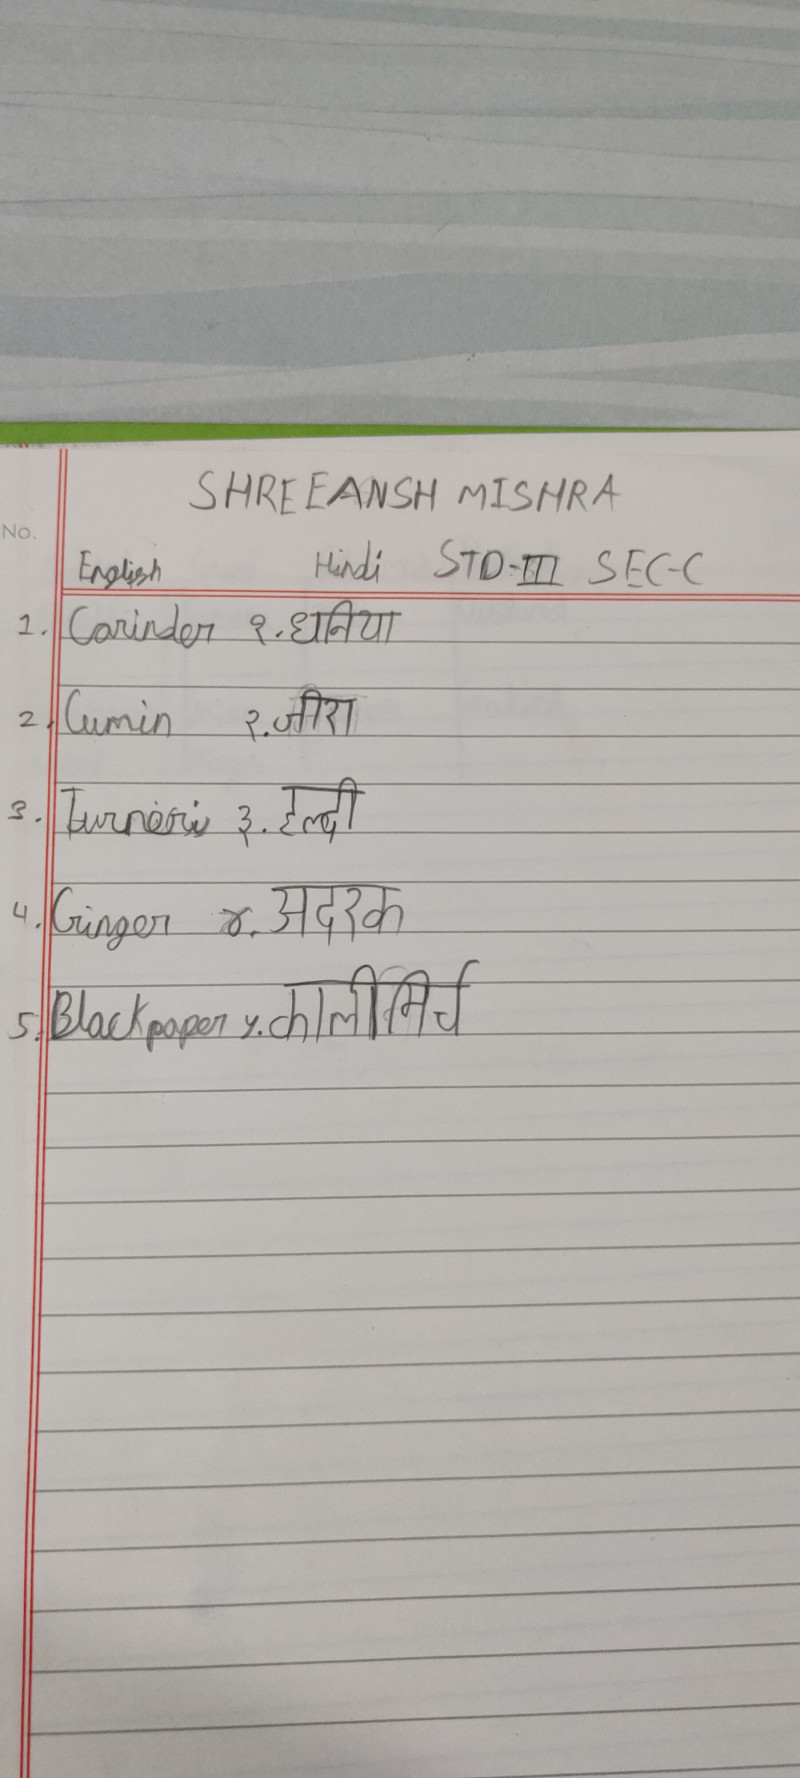 SHREEANSH MISHRA
No.
English Hindi STD-III SEC-C
1. Carinder १. धनिया
2. Cumin २. जीरा
3. Turneric ३. हल्दी
4. Ginger ४. अदरक
5. Blackpaper ५. कालीमिर्च